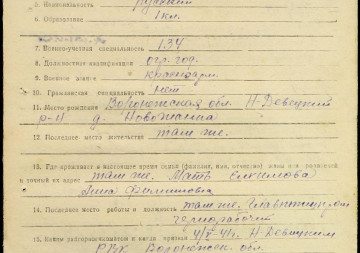 5. Национальность русский
6. Образование 1 кл.
7. Военно-учетная специальность 134
8. Должностная квалификация огр. год.
9. Военное звание красноарм.
10. Гражданская специальность нет
11. Место рождения Воронежская обл. Н-Девицкий
р-н д.
12. Последнее место жительства там же.
13. Где проживает в настоящее время семья (фамилия, имя, отчество) жены или родителей
и точный их адрес там же. Мать
Филипповна
14. Последнее место работы и должность там же.
чернорабочий
15. Каким райвоенкоматом и когда призван Н-Девицким
РВК Воронежск. обл.